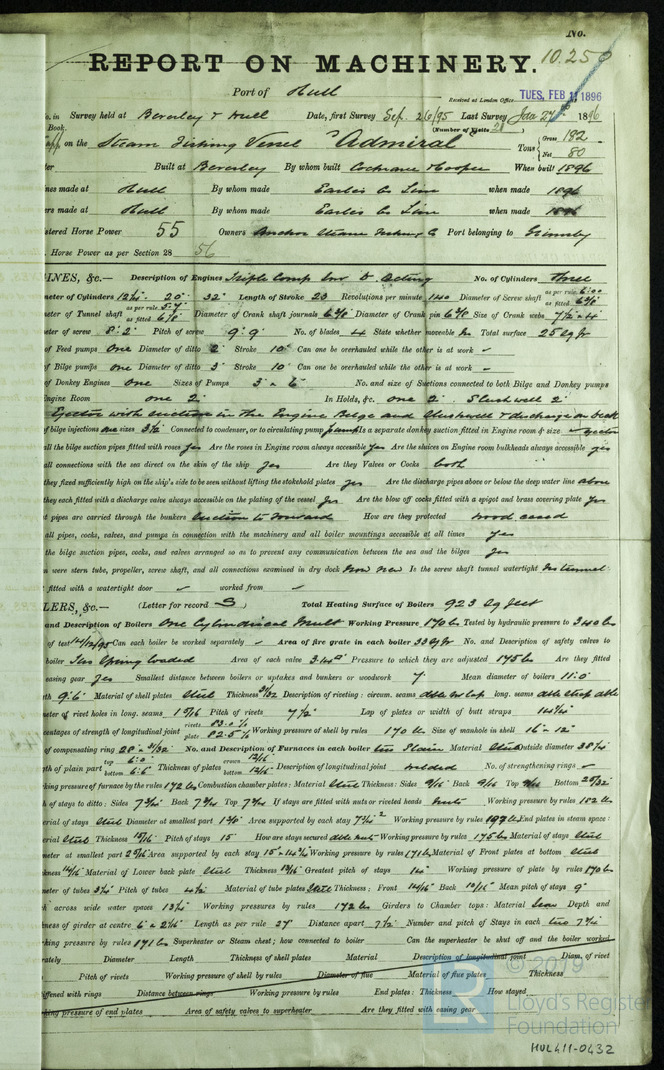 No.
10.250
REPORT ON MACHINERY.
Port of Hull
Received at London Office TUES. FEB 1896
No. in Survey held at Beverley & Hull Date, first Survey Sep. 26/95 Last Survey Jan 27 1896
Book. (Number of Visits 28)
on the Steam Fishing Vessel "Admiral" Tons Gross 182 Net 80
Built at Beverley By whom built Cochrane & Cooper When built 1896
ines made at Hull By whom made Earle's Co Lim when made 1896
ers made at Hull By whom made Earle's Co Lim when made 1896
stered Horse Power 55 Owners Anchor Steam Fishing Co Port belonging to Grimsby
Horse Power as per Section 28 56
INES, &c.— Description of Engines Triple Comp Inv D. Acting No. of Cylinders Three
meter of Cylinders 20" 32" Length of Stroke 23 Revolutions per minute 140 Diameter of Screw shaft as per rule as fitted
ter of Tunnel shaft as per rule as fitted Diameter of Crank shaft journals Diameter of Crank pin Size of Crank webs
eter of screw 8' 2" Pitch of screw 9' 9" No. of blades 4 State whether moveable No Total surface 25 sq ft
of Feed pumps One Diameter of ditto 2" Stroke 10" Can one be overhauled while the other is at work –
of Bilge pumps one Diameter of ditto 3" Stroke 10" Can one be overhauled while the other is at work –
of Donkey Engines one Sizes of Pumps 3" x 6" No. and size of Suctions connected to both Bilge and Donkey pumps
Engine Room one 2" In Holds, &c. one 2". Slushwell 2"
Ejector with suction in the Engine Bilge and Slushwell & discharge on deck
of bilge injections one sizes 3½" Connected to condenser, or to circulating pump pump Is a separate donkey suction fitted in Engine room & size ejector
all the bilge suction pipes fitted with roses yes Are the roses in Engine room always accessible yes Are the sluices on Engine room bulkheads always accessible yes
all connections with the sea direct on the skin of the ship yes Are they Valves or Cocks both
they fixed sufficiently high on the ship's side to be seen without lifting the stokehold plates yes Are the discharge pipes above or below the deep water line above
they each fitted with a discharge valve always accessible on the plating of the vessel yes Are the blow off cocks fitted with a spigot and brass covering plate yes
t pipes are carried through the bunkers Suction to Forward How are they protected wood cased
all pipes, cocks, valves, and pumps in connection with the machinery and all boiler mountings accessible at all times yes
the bilge suction pipes, cocks, and valves arranged so as to prevent any communication between the sea and the bilges yes
n were stern tube, propeller, screw shaft, and all connections examined in dry dock new Is the screw shaft tunnel watertight No tunnel
fitted with a watertight door – worked from –
LERS, &c.— (Letter for record S) Total Heating Surface of Boilers 923 sq feet
and Description of Boilers One Cylindrical Mult Working Pressure 170 lbs Tested by hydraulic pressure to 340 lbs
of test Can each boiler be worked separately – Area of fire grate in each boiler 33 sq ft No. and Description of safety valves to
boiler Two Spring loaded Area of each valve 3.14" Pressure to which they are adjusted 175 lbs Are they fitted
easing gear yes Smallest distance between boilers or uptakes and bunkers or woodwork 7" Mean diameter of boilers 11.0
th 9'6" Material of shell plates Steel Thickness 31/32 Description of riveting: circum. seams dble riv lap long. seams dble strap dble
meter of rivet holes in long. seams 1 Pitch of rivets 7½" Lap of plates or width of butt straps
centages of strength of longitudinal joint rivets plate 82.5% Working pressure of shell by rules 170 lbs Size of manhole in shell 16" x 12"
of compensating ring No. and Description of Furnaces in each boiler two Plain Material Steel Outside diameter
gth of plain part top 6.0" bottom 6.6" Thickness of plates crown bottom Description of longitudinal joint welded No. of strengthening rings –
rking pressure of furnace by the rules 172 lbs Combustion chamber plates: Material Steel Thickness: Sides 9/16 Back 9/16 Top 9/16 Bottom
h of stays to ditto: Sides Back Top If stays are fitted with nuts or riveted heads nuts Working pressure by rules
erial of stays Steel Diameter at smallest part Area supported by each stay Working pressure by rules End plates in steam space:
erial Steel Thickness Pitch of stays 15 How are stays secured dble nuts Working pressure by rules 175 lbs Material of stays Steel
meter at smallest part Area supported by each stay Working pressure by rules 171 lbs Material of Front plates at bottom Steel
kness Material of Lower back plate Steel Thickness Greatest pitch of stays 14" Working pressure of plate by rules 170 lbs
meter of tubes Pitch of tubes Material of tube plates Steel Thickness: Front Back Mean pitch of stays 9"
h across wide water spaces Working pressures by rules 172 lbs Girders to Chamber tops: Material Iron Depth and
kness of girder at centre Length as per rule 27" Distance apart 7½" Number and pitch of Stays in each two
rking pressure by rules 171 lbs Superheater or Steam chest; how connected to boiler Can the superheater be shut off and the boiler worked
rately Diameter Length Thickness of shell plates Material Description of longitudinal joint Diam. of rivet
Pitch of rivets Working pressure of shell by rules Diameter of flue Material of flue plates Thickness
iffened with rings Distance between rings Working pressure by rules End plates: Thickness How stayed
king pressure of end plates Area of safety valves to superheater Are they fitted with easing gear
© 2019
Lloyd's Register
Foundation
HUL411-0432